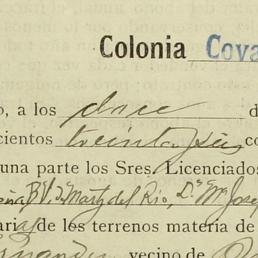 Colonia Cova
o, a los doce d
cientos treinta y seis co
una parte los Sres. Licenciados
eña B. V. de Marty del Rio, D.ª Mª Josef
arias de los terrenos materia de
ernandez vecino de